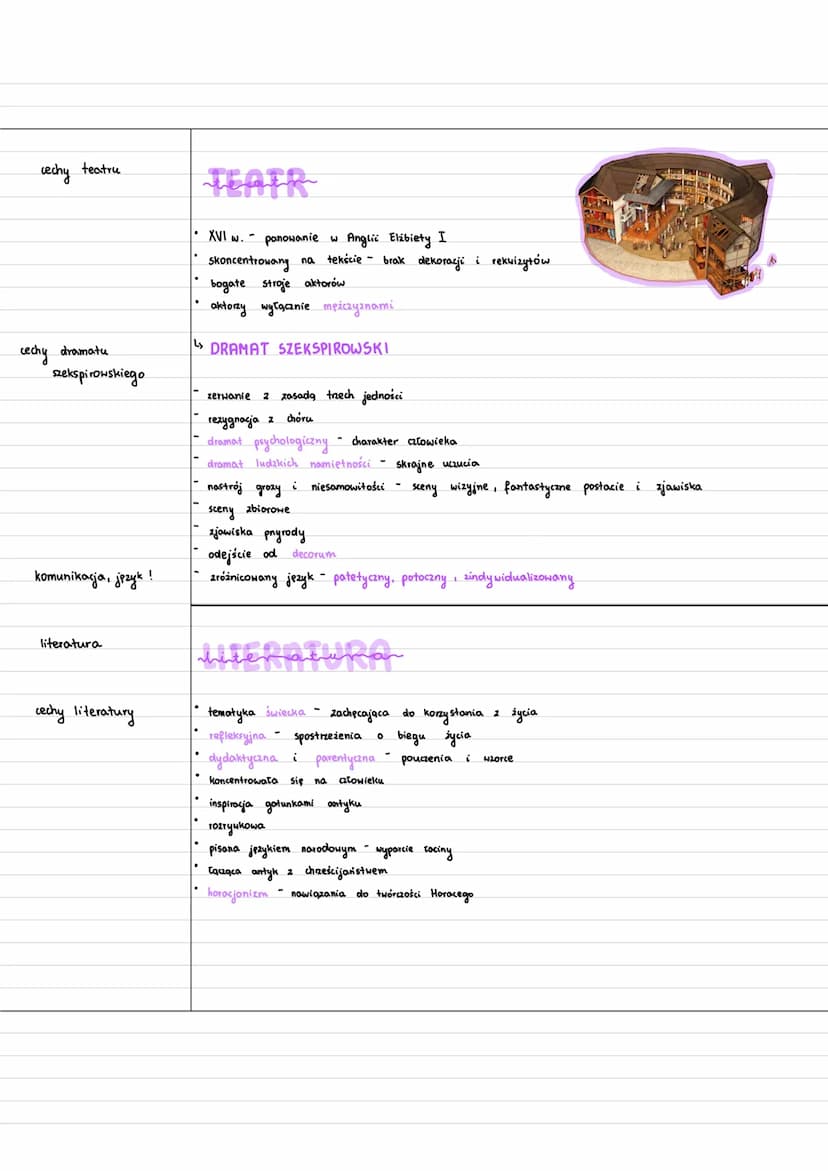 cechy teatru
TEATR
teatr
• XVI w. - panowanie w Anglii Elżbiety I
• skoncentrowany na tekście - brak dekoracji i rekwizytów
• bogate stroje aktorów
• aktorzy wyłącznie mężczyznami
cechy dramatu
szekspirowskiego
↳ DRAMAT SZEKSPIROWSKI
- zerwanie z zasadą trzech jedności
- rezygnacja z chóru
- dramat psychologiczny - charakter człowieka
- dramat ludzkich namiętności - skrajne uczucia
- nastrój grozy i niesamowitości - sceny wizyjne, fantastyczne postacie i zjawiska
- sceny zbiorowe
- zjawiska przyrody
- odejście od decorum
komunikacja, język !
- zróżnicowany język - patetyczny, potoczny, zindywidualizowany
literatura
LITERATURA
literatura
cechy literatury
• tematyka świecka - zachęcająca do korzystania z życia
• refleksyjna - spostrzeżenia o biegu życia
• dydaktyczna i parentyczna - pouczenia i wzorce
• koncentrowała się na człowieku
• inspiracja gatunkami antyku
• rozrywkowa
• pisana językiem narodowym - wyparcie łaciny
• łącząca antyk z chrześcijaństwem
• horacjonizm - nawiązania do twórczości Horacego